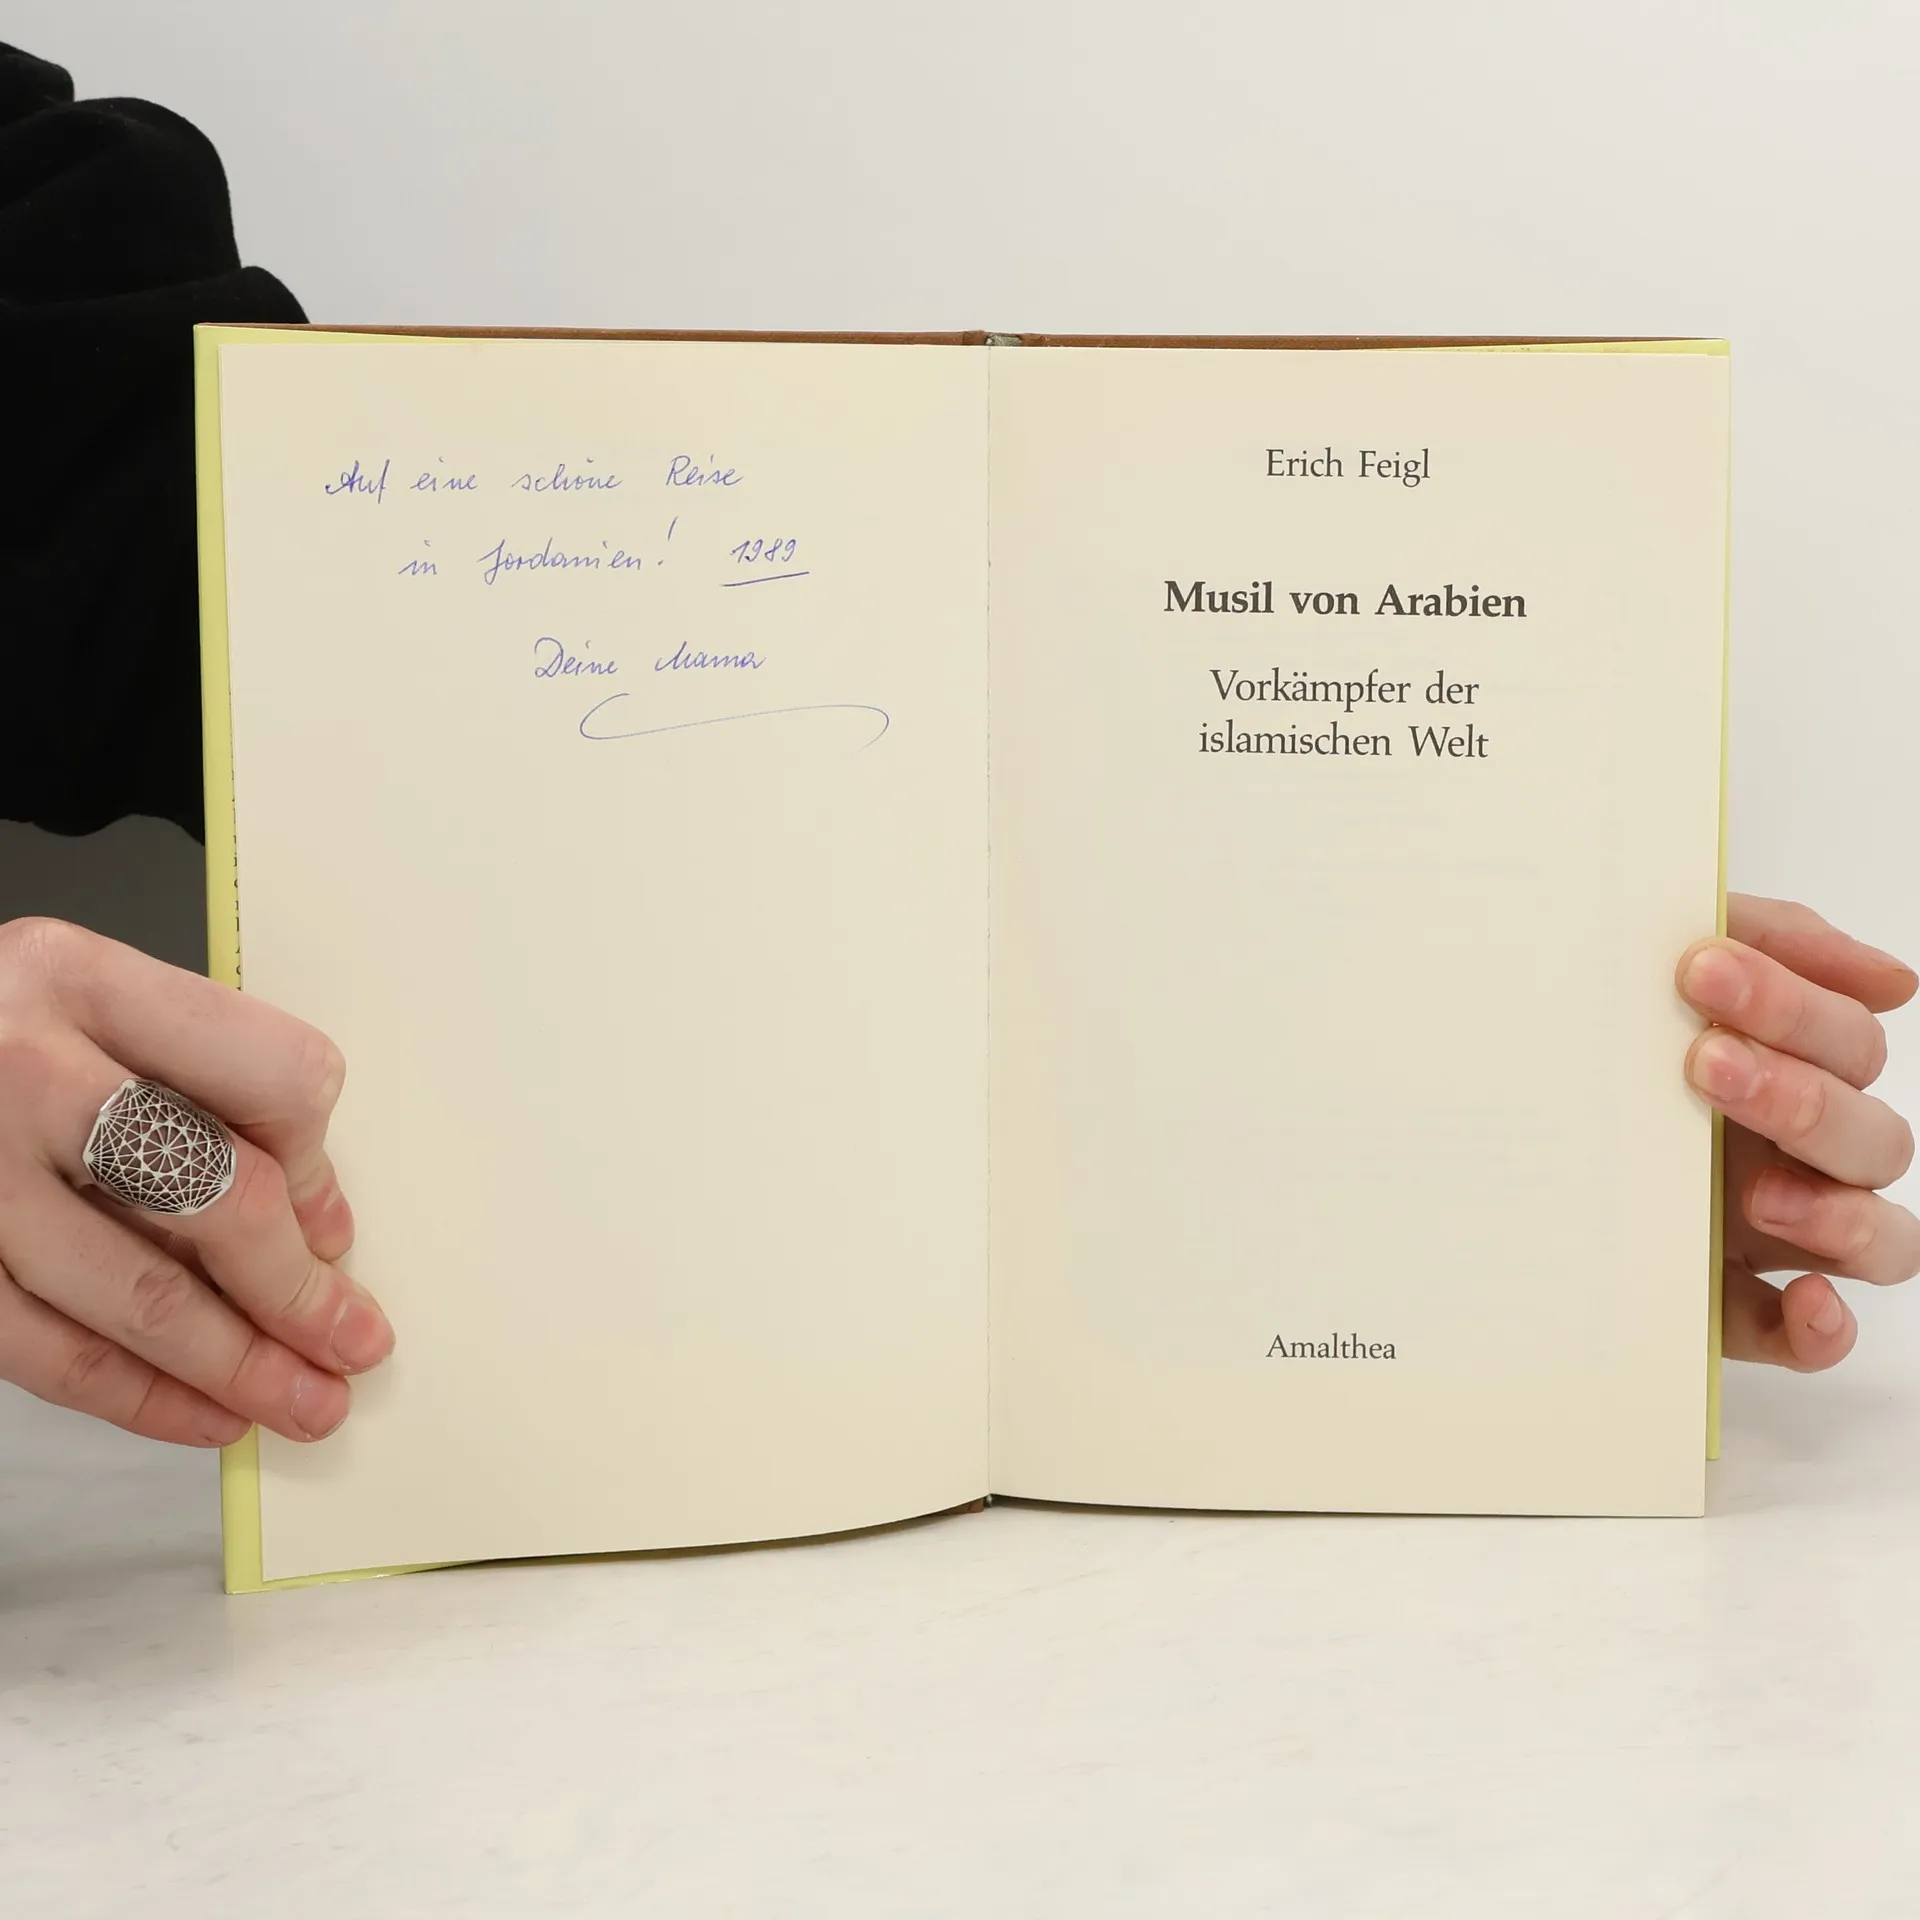 Auf eine schöne Reise
in Jordanien! 1989
Deine Mama
Erich Feigl
Musil von Arabien
Vorkämpfer der
islamischen Welt
Amalthea